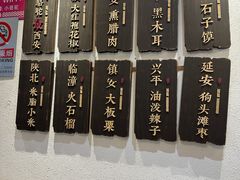 西安
大红袍花椒
安
熏腊肉
黑木耳
石子馍
陕北
米脂小米
临潼
火石榴
镇安
大板栗
兴平
油泼辣子
延安
狗头滩枣